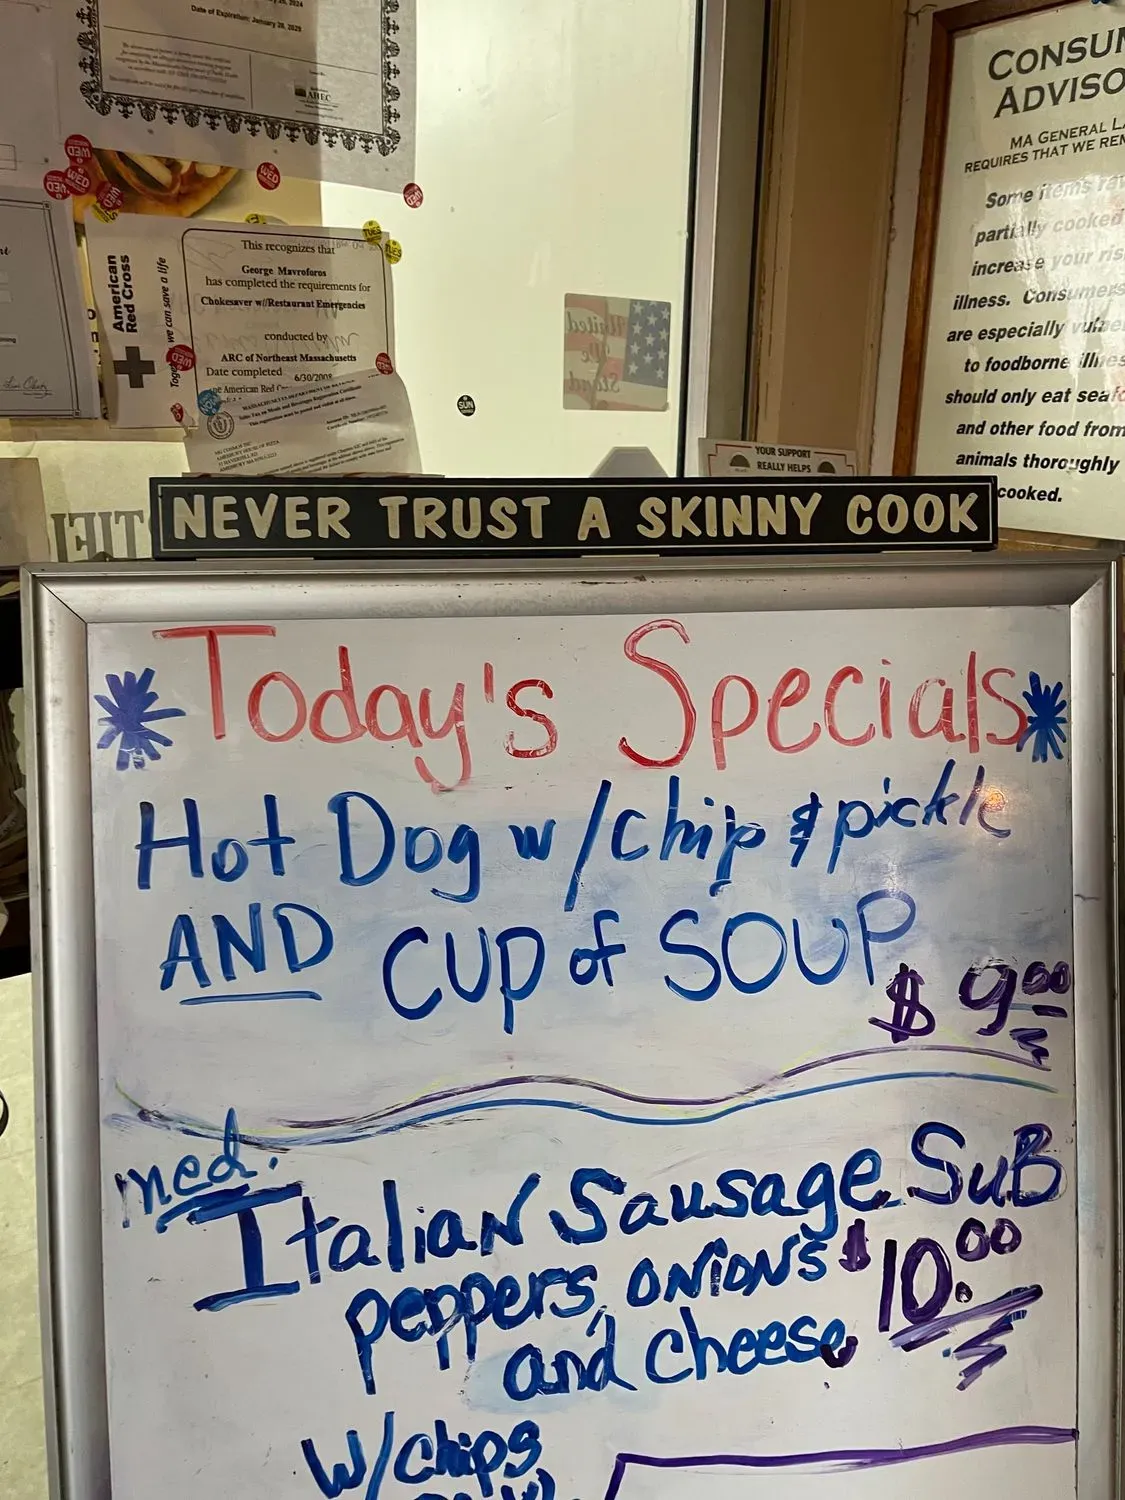 Date of Expiration: January 28, 2029
WED
TUES
American
Red Cross
we can save a life
This recognizes that
George Mavroforos
has completed the requirements for
Chokesaver w//Restaurant Emergencies
conducted by
ARC of Northeast Massachusetts
Date completed 6/30/2008
United
We
Stand
SUN
YOUR SUPPORT
REALLY HELPS
CONSUM
ADVISO
MA GENERAL LA
REQUIRES THAT WE REM
Some items raw
partially cooked
increase your ris
illness. Consumers
are especially vulne
to foodborne illnes
should only eat seafo
and other food from
animals thoroughly
cooked.
NEVER TRUST A SKINNY COOK
Today's Specials
Hot Dog w/chip & pickle
AND CUP of SOUP
$ 9.00
med.
Italian Sausage SuB
peppers, onions $10.00
and cheese
w/chips